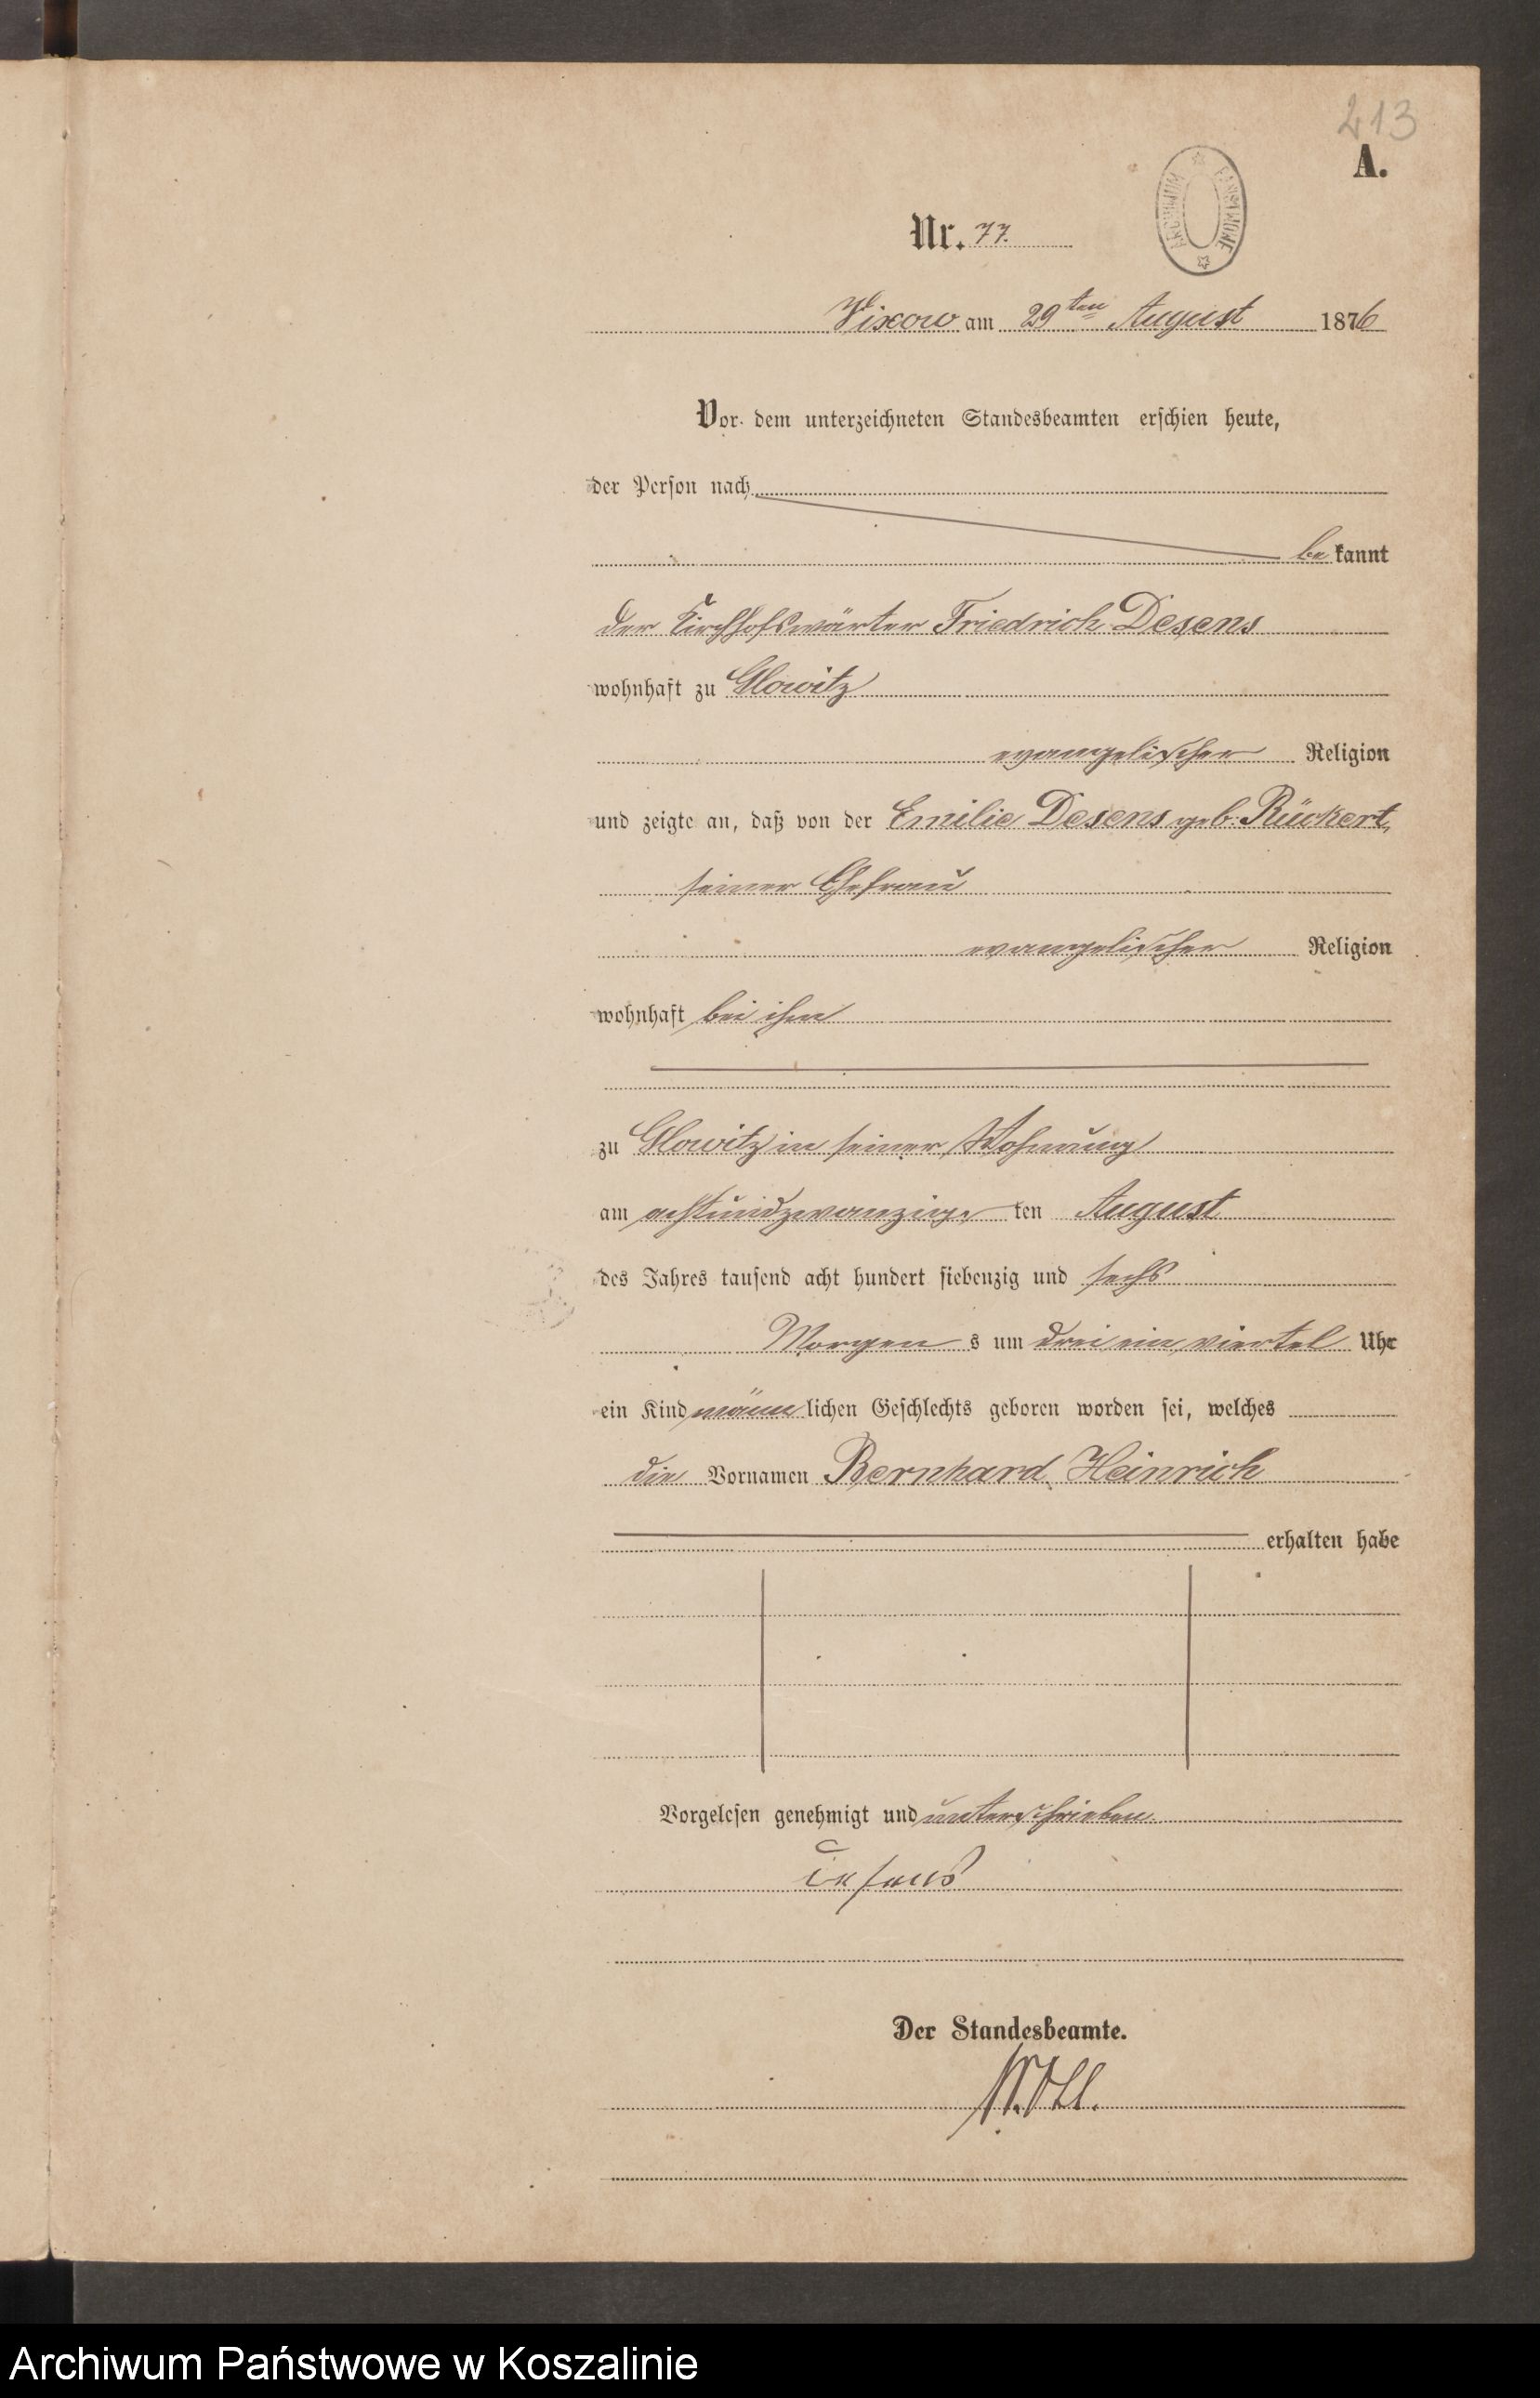 213
A.
ARCHIWUM PAŃSTWOWE
Nr. 77.
Vixow am 29ten August 1876
Vor dem unterzeichneten Standesbeamten erschien heute,
der Person nach
be kannt
der Kirchhofswärter Friedrich Desens
wohnhaft zu Glowitz
evangelischer Religion
und zeigte an, daß von der Emilie Desens geb. Rückert,
seiner Ehefrau
evangelischer Religion
wohnhaft bei ihm
zu Glowitz in seiner Wohnung
am achtundzwanzigs ten August
des Jahres tausend acht hundert siebenzig und sechs
Morgen s um drei ein viertel Uhr
ein Kind männ lichen Geschlechts geboren worden sei, welches
die Vornamen Bernhard Heinrich
erhalten habe
Vorgelesen genehmigt und unterschrieben.
Desens
Der Standesbeamte.
Archiwum Państwowe w Koszalinie